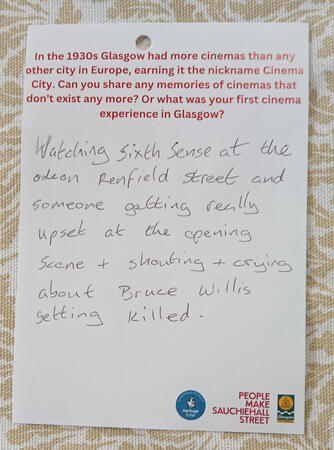 In the 1930s Glasgow had more cinemas than any
other city in Europe, earning it the nickname Cinema
City. Can you share any memories of cinemas that
don't exist any more? Or what was your first cinema
experience in Glasgow?
Watching Sixth Sense at the
odeon Renfield Street and
someone getting really
upset at the opening
scene + shouting + crying
about Bruce Willis
getting killed.
Heritage
Fund
PEOPLE
MAKE
SAUCHIEHALL
STREET
Glasgow